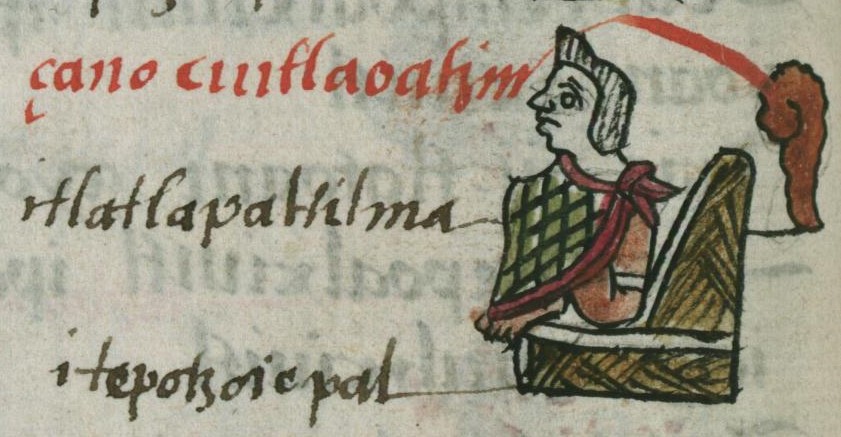 çano cuitlaoatzin
itlatlapaltilma
itepotzoicpal